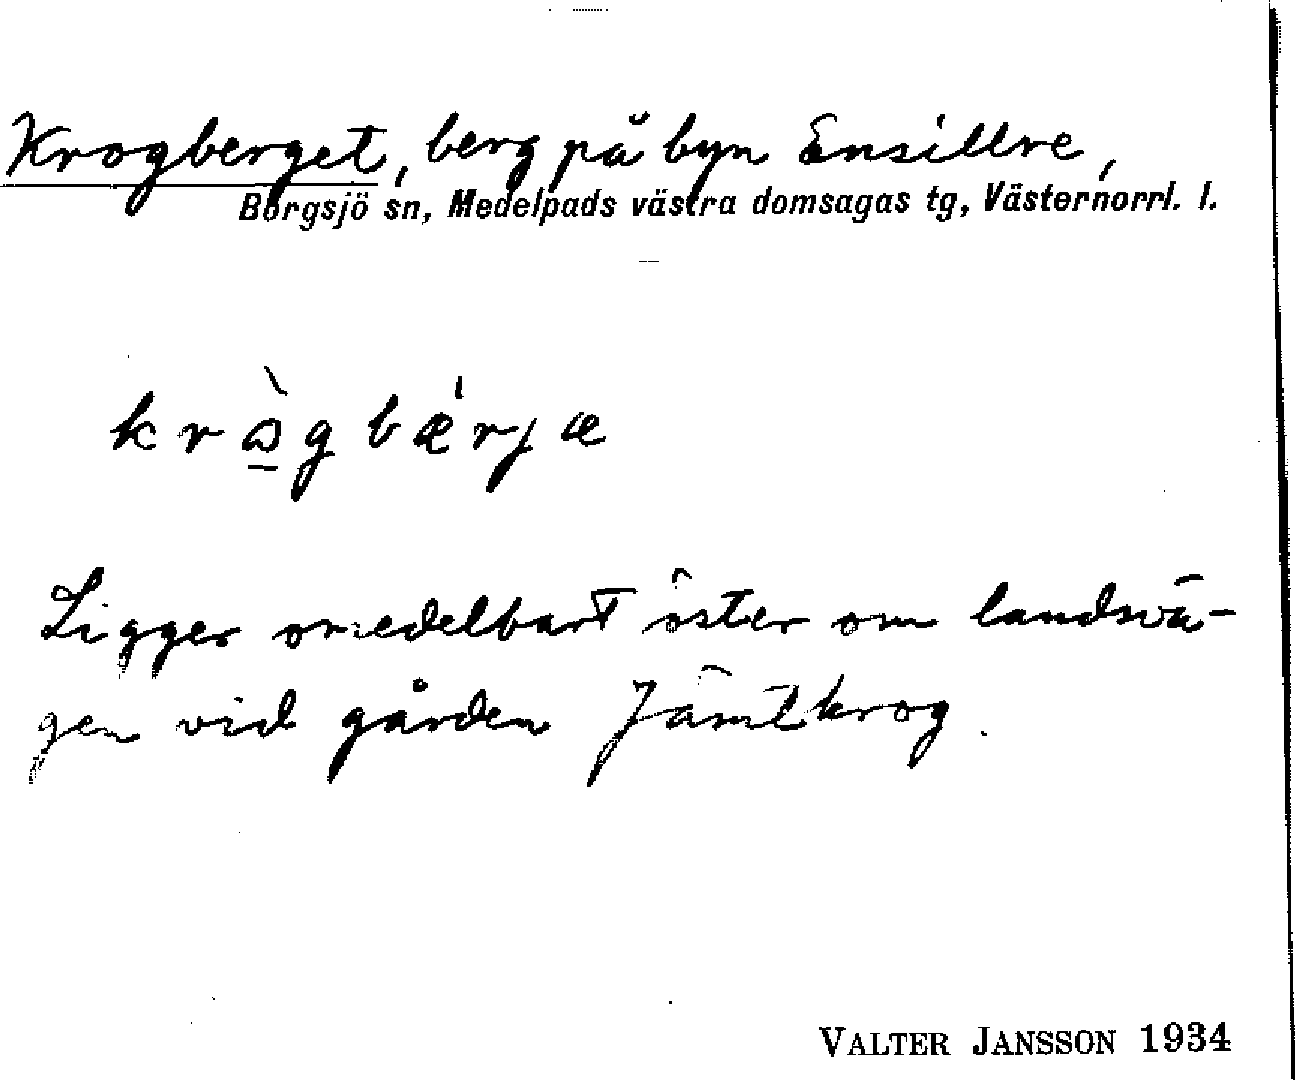 Krogberget, berg på byn Ensillre,
Borgsjö sn, Medelpads västra domsagas tg, Västernorrl. l.
krɷ̠̀gbǽrjæ
Ligger omedelbart öster om landsvä-
gen vid gården Jämtkrog.
VALTER JANSSON 1934